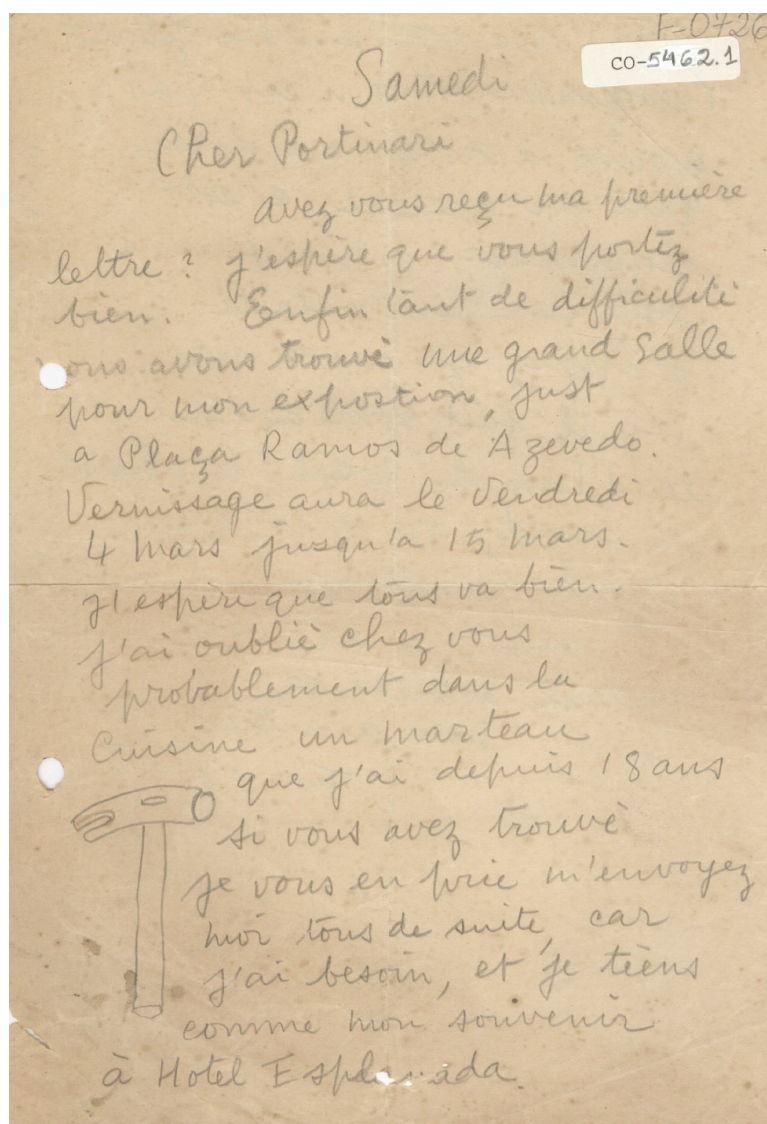 F-0726
CO-5462.1
Samedi
Cher Portinari
avez vous reçu ma première
lettre ? j'espère que vous portez
bien. Enfin tant de difficulité
ous avons trouvé une grand Salle
pour mon expostion, just
a Plaça Ramos de Azevedo.
Vernissage aura le Vendredi
4 Mars jusqu'a 15 Mars.
j'espère que tous va bien.
j'ai oublié chez vous
probablement dans la
Cuisine un marteau
que j'ai depuis 18 ans
si vous avez trouvé
je vous en prie m'envoyez
moi tous de suite, car
j'ai besoin, et je tiens
comme mon souvenir
à Hotel Esplanada.